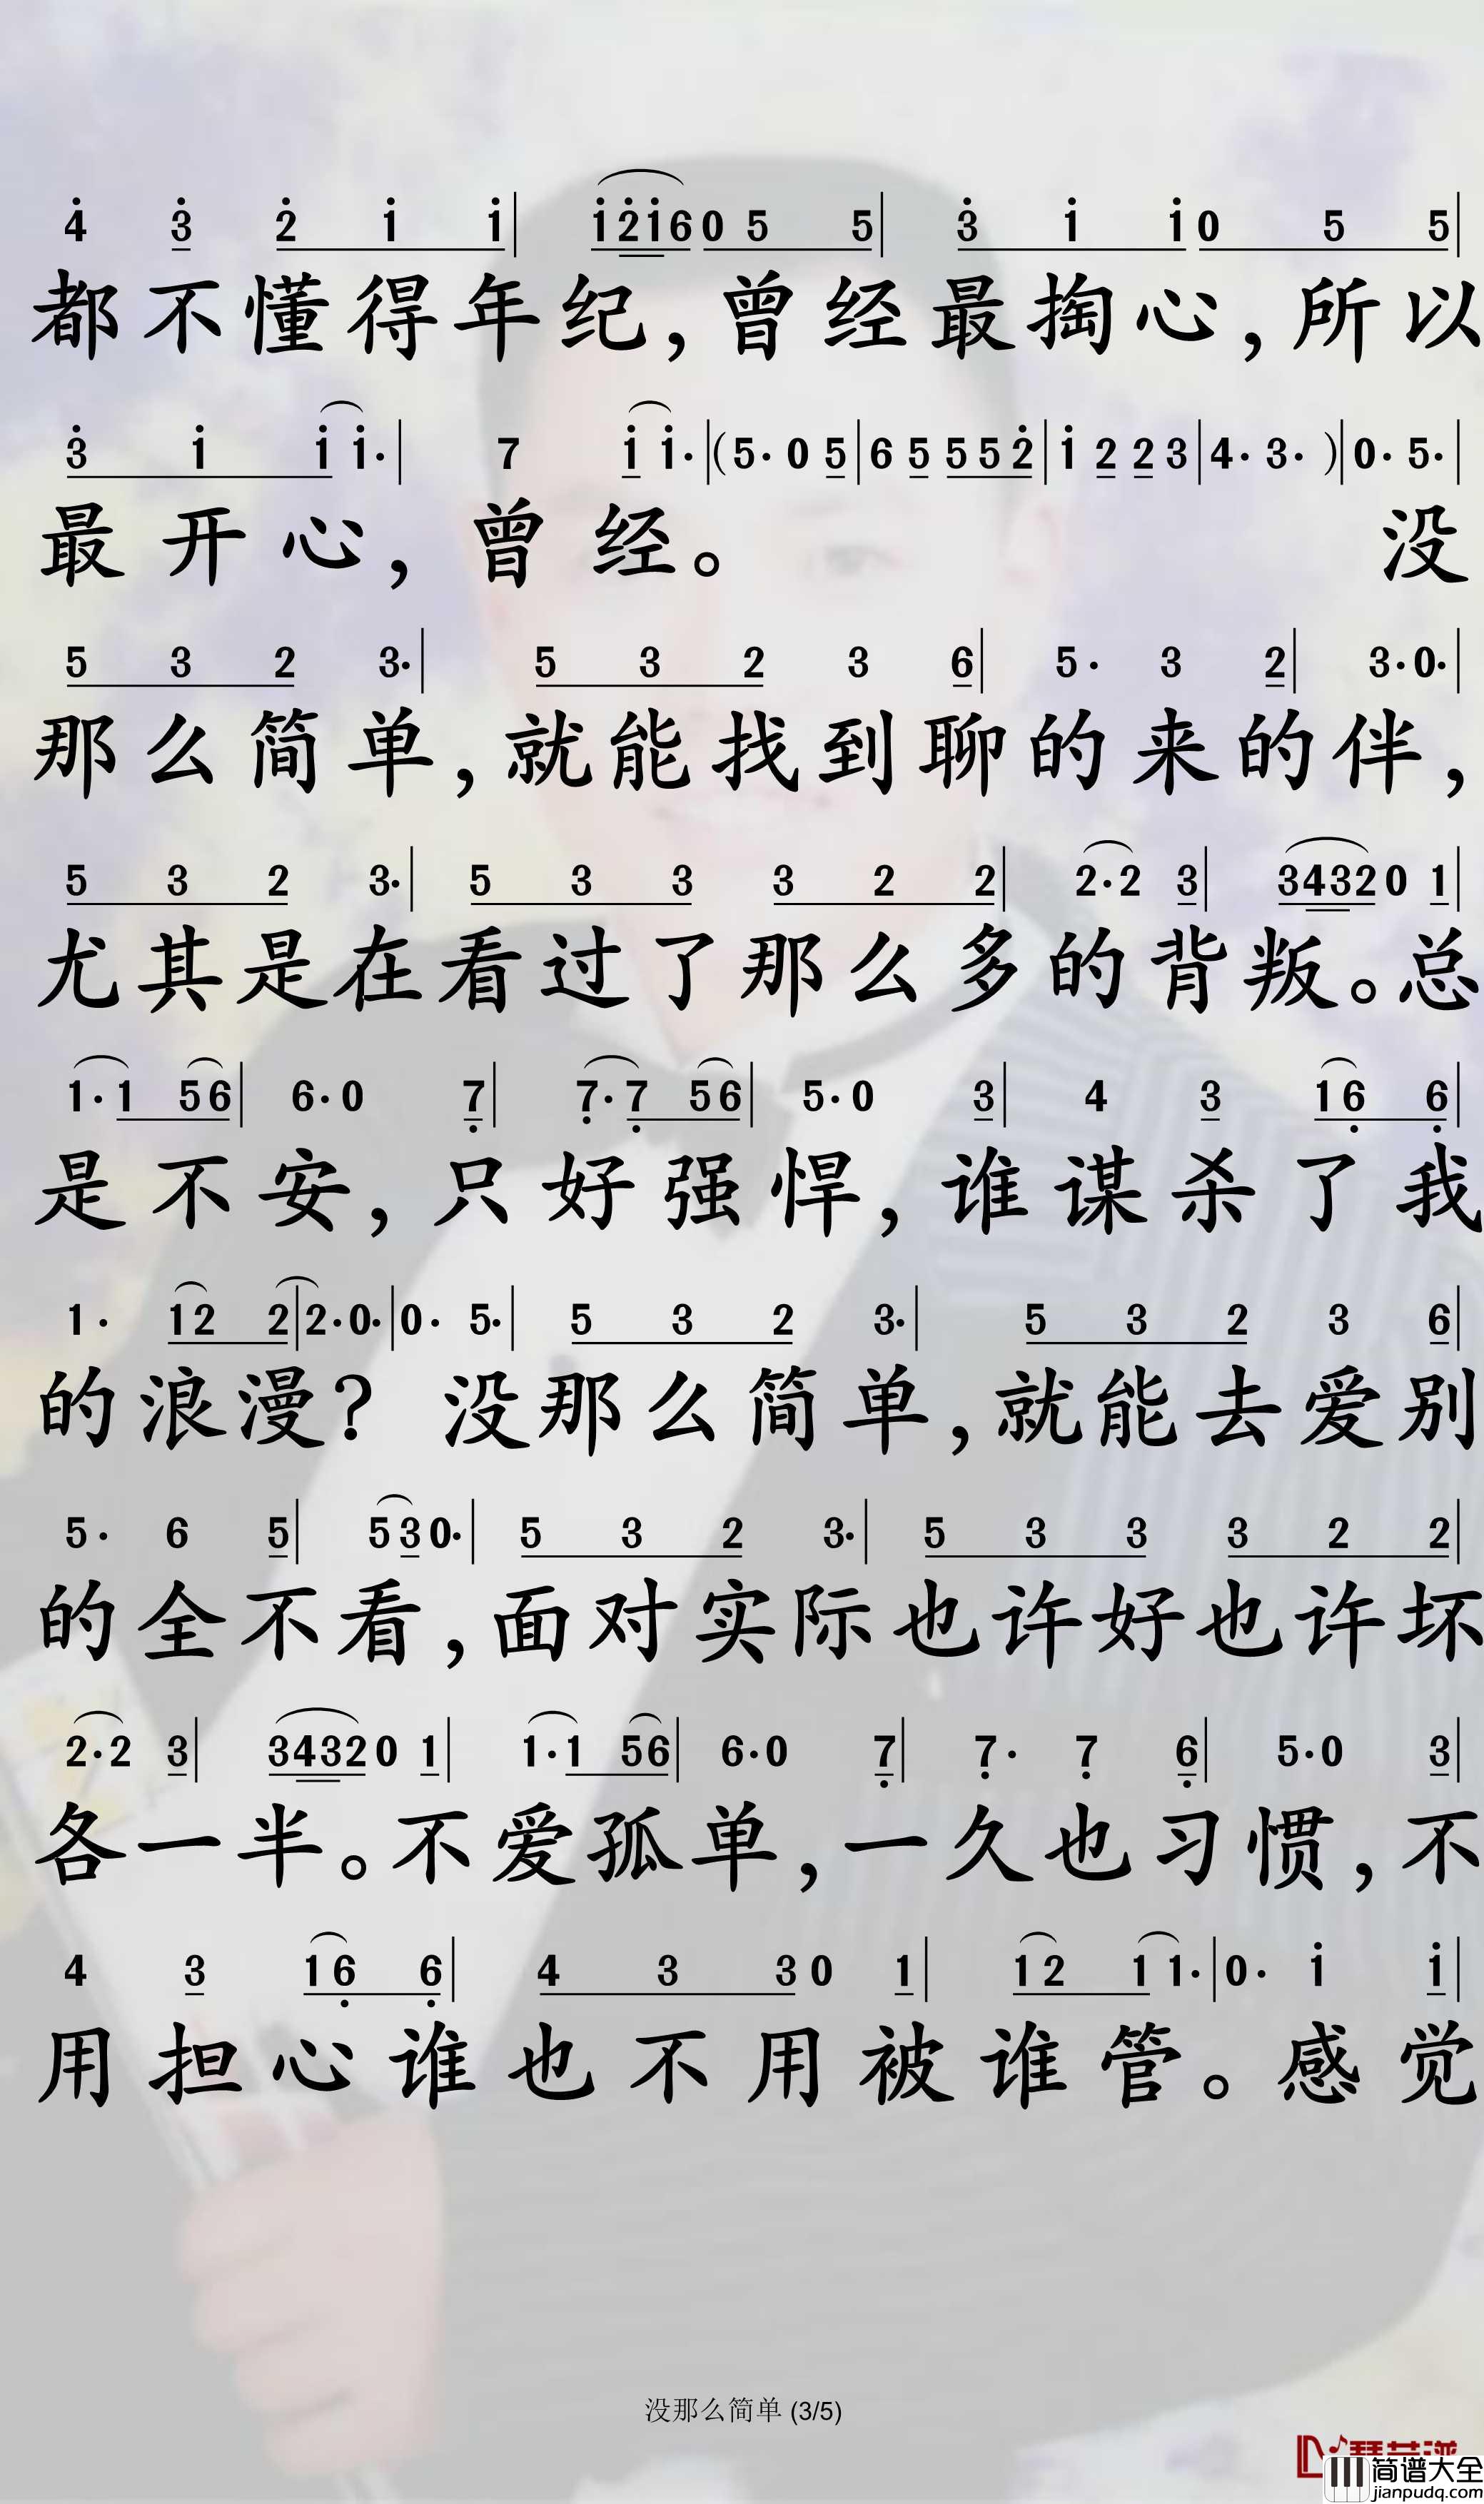 4̇ 3̇ 2̇ 1̇ 1̇| 1̇2̇1̇6 0 5 5| 3̇ 1̇ 1̇ 0 5 5|
都不懂得年纪,曾经最掏心,所以
3̇ 1̇ 1̇ 1̇·| 7 1̇ 1̇·|(5· 0 5|6 5 5 5 2̇|1̇ 2 2 3|4· 3· )|0· 5·|
最开心,曾经。 没
5 3 2 3·| 5 3 2 3 6| 5· 3 2| 3·0·|
那么简单,就能找到聊的来的伴,
5 3 2 3·| 5 3 3 3 2 2| 2·2 3| 34320 1|
尤其是在看过了那么多的背叛。总
1·1 56| 6·0 7̣| 7̣·7̣ 56| 5·0 3| 4 3 16̣ 6̣|
是不安,只好强悍,谁谋杀了我
1· 12 2|2·0·|0· 5·| 5 3 2 3·| 5 3 2 3 6|
的浪漫? 没那么简单,就能去爱别
5· 6 5| 53 0·| 5 3 2 3·| 5 3 3 3 2 2|
的全不看,面对实际也许好也许坏
2·2 3| 34320 1| 1·1 56| 6·0 7̣| 7̣· 7̣ 6̣| 5·0 3|
各一半。不爱孤单,一久也习惯,不
4 3 16̣ 6̣| 4 3 3 0 1| 12 1 1·|0· 1̇ 1̇|
用担心谁也不用被谁管。感觉
没那么简单 (3/5)
简谱大全
jianpudq.com